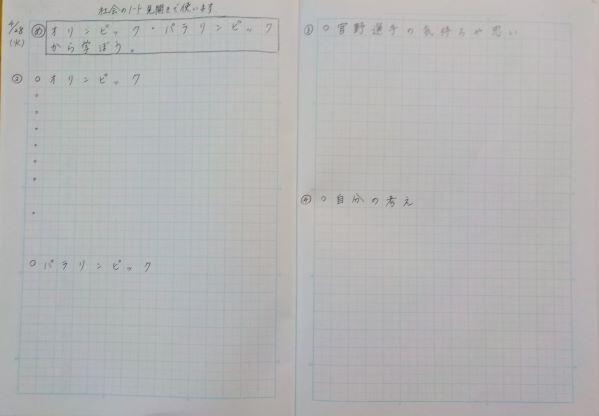 社会のノート見開きで使います
4/28
(火)
め オリンピック・パラリンピック
から学ぼう。
② ○オリンピック
○パラリンピック
③ ○宮野選手の気持ちや思い
④ ○自分の考え